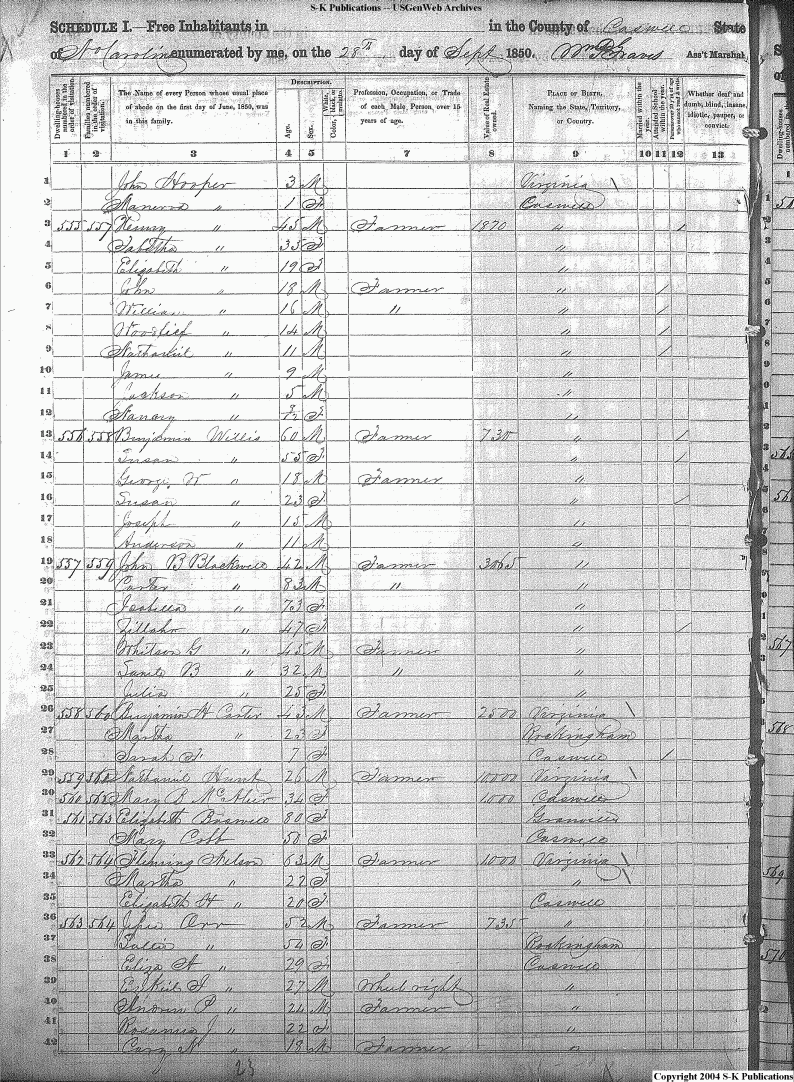 S-K Publications -- USGenWeb Archives
SCHEDULE I.—Free Inhabitants in in the County of Caswell State
of No Carolina enumerated by me, on the 28th day of Sept 1850. Wm Graves Ass't Marshal.
Dwelling-houses numbered in the order of visitation. Families numbered in the order of visitation. The Name of every Person whose usual place of abode on the first day of June, 1850, was in this family. DESCRIPTION. Age. Sex. Color, White, black, or mulatto. Profession, Occupation, or Trade of each Male Person over 15 years of age. Value of Real Estate owned. PLACE OF BIRTH. Naming the State, Territory, or Country. Married within the year. Attended School within the year. Whether deaf and dumb, blind, insane, idiotic, pauper, or convict.
1 2 3 4 5 6 7 8 9 10 11 12 13
1 John Hooper 3 M Virginia \
2 Manerva " 1 F Caswell
3 555 557 Henry " 45 M Farmer 1870 " /
4 Tabitha " 35 F "
5 Elizabeth " 19 F "
6 John " 18 M Farmer " /
7 William " 16 M " " /
8 Woodlief " 14 M " /
9 Nathaniel " 11 M " /
10 James " 9 M "
11 Jackson " 5 M "
12 Nancy " F "
13 556 558 Benjamin Willis 60 M Farmer 730 " /
14 Susan " 55 F " /
15 George W " 18 M Farmer "
16 Susan " 23 F " /
17 Joseph " 15 M "
18 Anderson " 11 M "
19 557 559 John B Blackwell 42 M Farmer 3065 "
20 Carter " 83 M " "
21 Isabella " 73 F "
22 Zillah " 47 F " /
23 Whitson G " 45 M Farmer "
24 B " 32 M " "
25 Julia " 25 F "
26 558 560 Benjamin H Carter 43 M Farmer 2500 Virginia \
27 Martha " 23 F Rockingham
28 Sarah F " 7 F Caswell /
29 559 561 Nathaniel Hunt 26 M Farmer 10000 Virginia \
30 560 562 Mary B 34 F 1000 Caswell
31 561 563 Elizabeth Boswell 80 F Granville
32 Mary Cobb 50 F Caswell
33 562 564 Fleming Nelson 63 M Farmer 1000 Virginia \
34 Martha " 22 F " \
35 Elizabeth H " 20 F Caswell
36 563 564 Orr 52 M Farmer 735 "
37 " 54 F Rockingham
38 Eliza A " 29 F Caswell
39 " 27 M Wheel right "
40 P " 24 M Farmer "
41 Rosannia J " 22 F "
42 N " 18 M Farmer "
23
Copyright 2004 S-K Publications